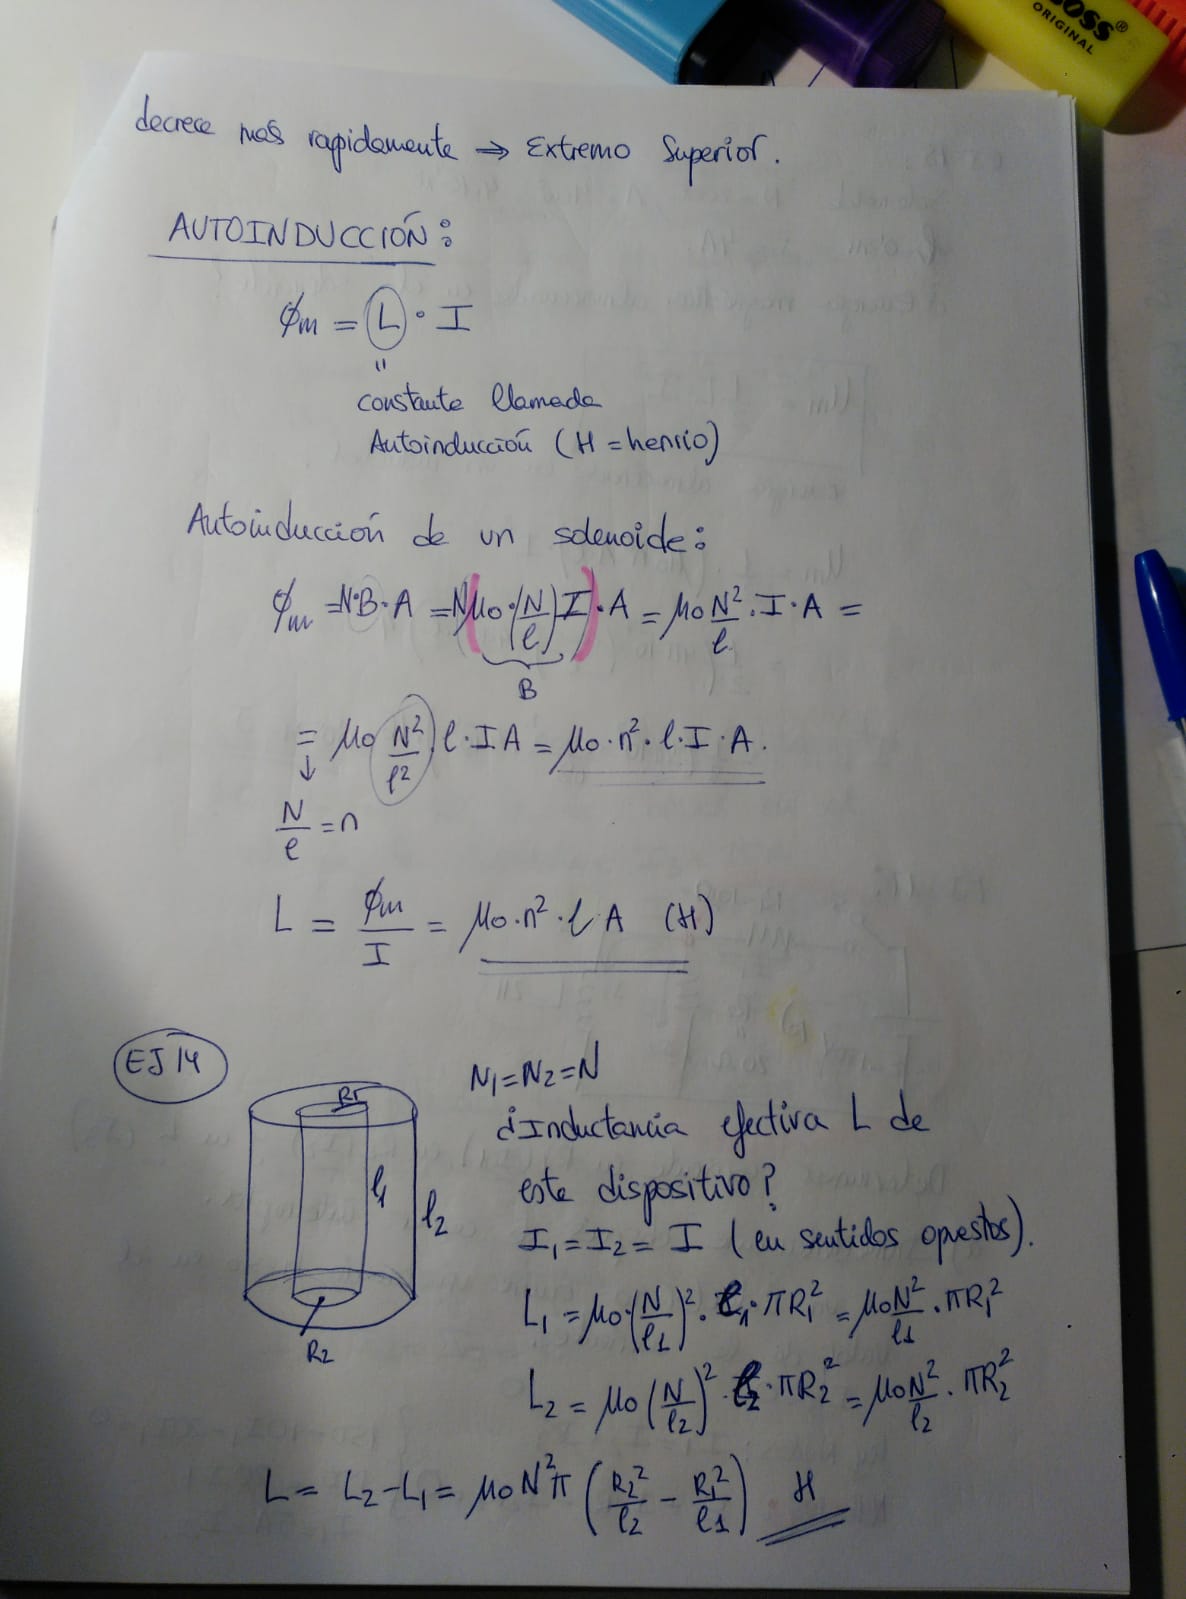 BOSS®
ORIGINAL
decrece mas rapidamente ⇒ Extremo Superior.
AUTOINDUCCIÓN:
φm = L · I
"
constante llamada
Autoinducción (H = henrio)
Autoinducción de un solenoide:
φm = N·B·A = N(μo·(N/l)I)·A = μo N²/l · I·A =
B
= μo N²/l² · l·I A = μo·n²·l·I·A.
↓
N/l = n
L = φm/I = μo·n²·l A (H)
EJ 14
N₁=N₂=N
¿Inductancia efectiva L de
este dispositivo?
I₁=I₂= I (en sentidos opuestos).
R1
l₁
l₂
R₂
L₁ = μo·(N/l1)²·l₁·πR₁² = μoN²/l1 · πR₁²
L₂ = μo(N/l₂)²·l₂·πR₂² = μoN²/l₂ · πR₂²
L = L₂-L₁ = μo N²π (R₂²/l₂ - R₁²/l1) H